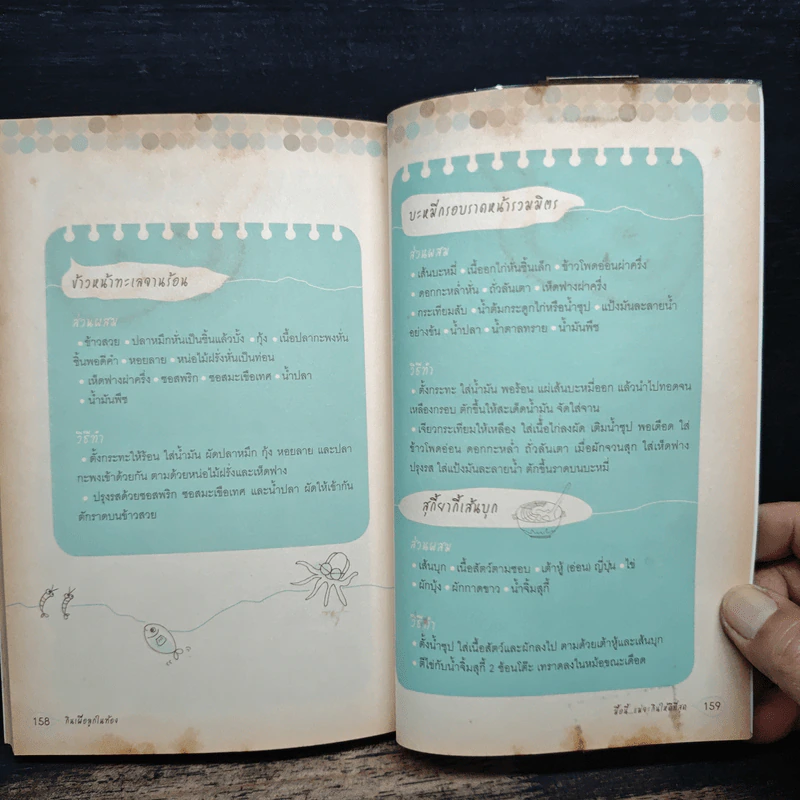 ข้าวหน้าทะเลจานร้อน
ส่วนผสม
• ข้าวสวย • ปลาหมึกหั่นเป็นชิ้นแล้วบั้ง • กุ้ง • เนื้อปลากะพงหั่น
ชิ้นพอดีคำ • หอยลาย • หน่อไม้ฝรั่งหั่นเป็นท่อน
• เห็ดฟางผ่าครึ่ง • ซอสพริก • ซอสมะเขือเทศ • น้ำปลา
• น้ำมันพืช
วิธีทำ
• ตั้งกระทะให้ร้อน ใส่น้ำมัน ผัดปลาหมึก กุ้ง หอยลาย และปลา
กะพงเข้าด้วยกัน ตามด้วยหน่อไม้ฝรั่งและเห็ดฟาง
• ปรุงรสด้วยซอสพริก ซอสมะเขือเทศ และน้ำปลา ผัดให้เข้ากัน
ตักราดบนข้าวสวย
158 กินเพื่อลูกในท้อง
บะหมี่กรอบราดหน้ารวมมิตร
ส่วนผสม
• เส้นบะหมี่ • เนื้ออกไก่หั่นชิ้นเล็ก • ข้าวโพดอ่อนผ่าครึ่ง
• ดอกกะหล่ำหั่น • ถั่วลันเตา • เห็ดฟางผ่าครึ่ง
• กระเทียมสับ • น้ำต้มกระดูกไก่หรือน้ำซุป • แป้งมันละลายน้ำ
อย่างข้น • น้ำปลา • น้ำตาลทราย • น้ำมันพืช
วิธีทำ
• ตั้งกระทะ ใส่น้ำมัน พอร้อน แผ่เส้นบะหมี่ออก แล้วนำไปทอดจน
เหลืองกรอบ ตักขึ้นให้สะเด็ดน้ำมัน จัดใส่จาน
• เจียวกระเทียมให้เหลือง ใส่เนื้อไก่ลงผัด เติมน้ำซุป พอเดือด ใส่
ข้าวโพดอ่อน ดอกกะหล่ำ ถั่วลันเตา เมื่อผักจวนสุก ใส่เห็ดฟาง
ปรุงรส ใส่แป้งมันละลายน้ำ ตักขึ้นราดบนบะหมี่
สุกี้ยากี้เส้นบุก
ส่วนผสม
• เส้นบุก • เนื้อสัตว์ตามชอบ • เต้าหู้ (อ่อน) ญี่ปุ่น • ไข่
• ผักบุ้ง • ผักกาดขาว • น้ำจิ้มสุกี้
วิธีทำ
• ตั้งน้ำซุป ใส่เนื้อสัตว์และผักลงไป ตามด้วยเต้าหู้และเส้นบุก
• ตีไข่กับน้ำจิ้มสุกี้ 2 ช้อนโต๊ะ เทราดลงในหม้อขณะเดือด
159